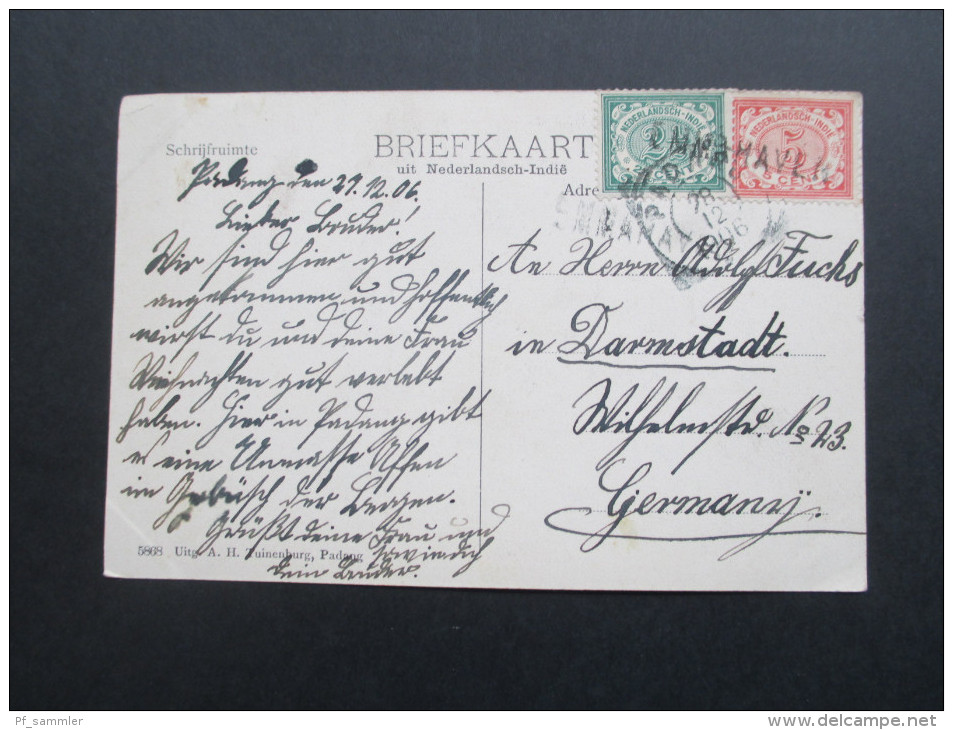 Schrijfruimte
BRIEFKAART
uit Nederlandsch-Indië
NEDERLANDSCH-INDIË
2½
CENT
NEDERLANDSCH-INDIË
5
CENT
EMMAHAVEN
28
12
906
Padang den 27.12.06.
Lieber Bruder!
Wir sind hier gut
angekommen und hoffentlich
wirst du und deine Frau
Weihnachten gut verlebt
haben. Hier in Padang gibt
es eine Unmasse Affen
im Gebüsch der Bergen.
Grüßt deine Frau und
sowie dich
dein Bruder.
An Herrn Adolf Fuchs
in Darmstadt.
Wilhelmstr. No 23.
Germany.
5868 Uitg. A. H. Tuinenburg, Padang
Pf_sammler
delcampe.net